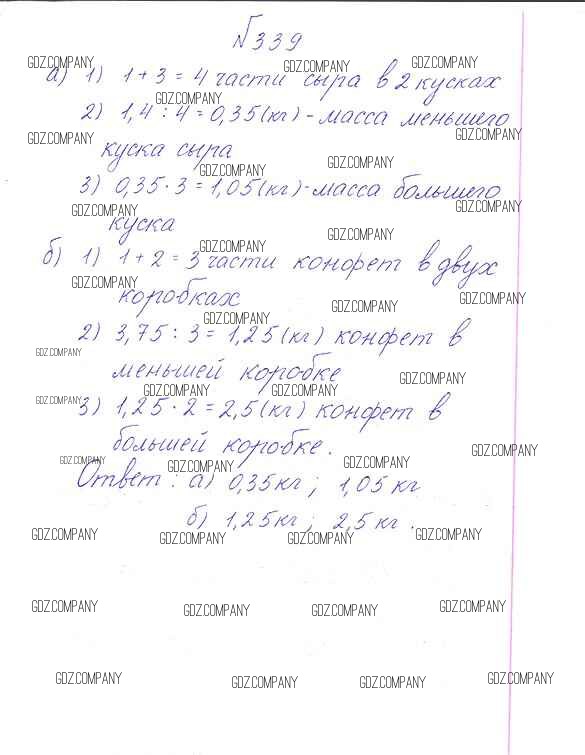 №339
GDZ.COMPANY GDZ.COMPANY GDZ.COMPANY
а) 1) 1 + 3 = 4 части сыра в 2 кусках
GDZ.COMPANY
2) 1,4 : 4 = 0,35 (кг) - масса меньшего
GDZ.COMPANY GDZ.COMPANY
куска сыра
GDZ.COMPANY GDZ.COMPANY
3) 0,35 · 3 = 1,05 (кг) - масса большего
GDZ.COMPANY GDZ.COMPANY
куска
GDZ.COMPANY GDZ.COMPANY
б) 1) 1 + 2 = 3 части конфет в двух
GDZ.COMPANY
коробках
GDZ.COMPANY GDZ.COMPANY GDZ.COMPANY
2) 3,75 : 3 = 1,25 (кг) конфет в
GDZ.COMPANY
меньшей коробке
GDZ.COMPANY GDZ.COMPANY GDZ.COMPANY
GDZ.COMPANY
3) 1,25 · 2 = 2,5 (кг) конфет в
большей коробке.
GDZ.COMPANY GDZ.COMPANY GDZ.COMPANY GDZ.COMPANY
Ответ: а) 0,35 кг; 1,05 кг
б) 1,25 кг; 2,5 кг.
GDZ.COMPANY GDZ.COMPANY GDZ.COMPANY GDZ.COMPANY
GDZ.COMPANY GDZ.COMPANY GDZ.COMPANY GDZ.COMPANY
GDZ.COMPANY GDZ.COMPANY GDZ.COMPANY GDZ.COMPANY